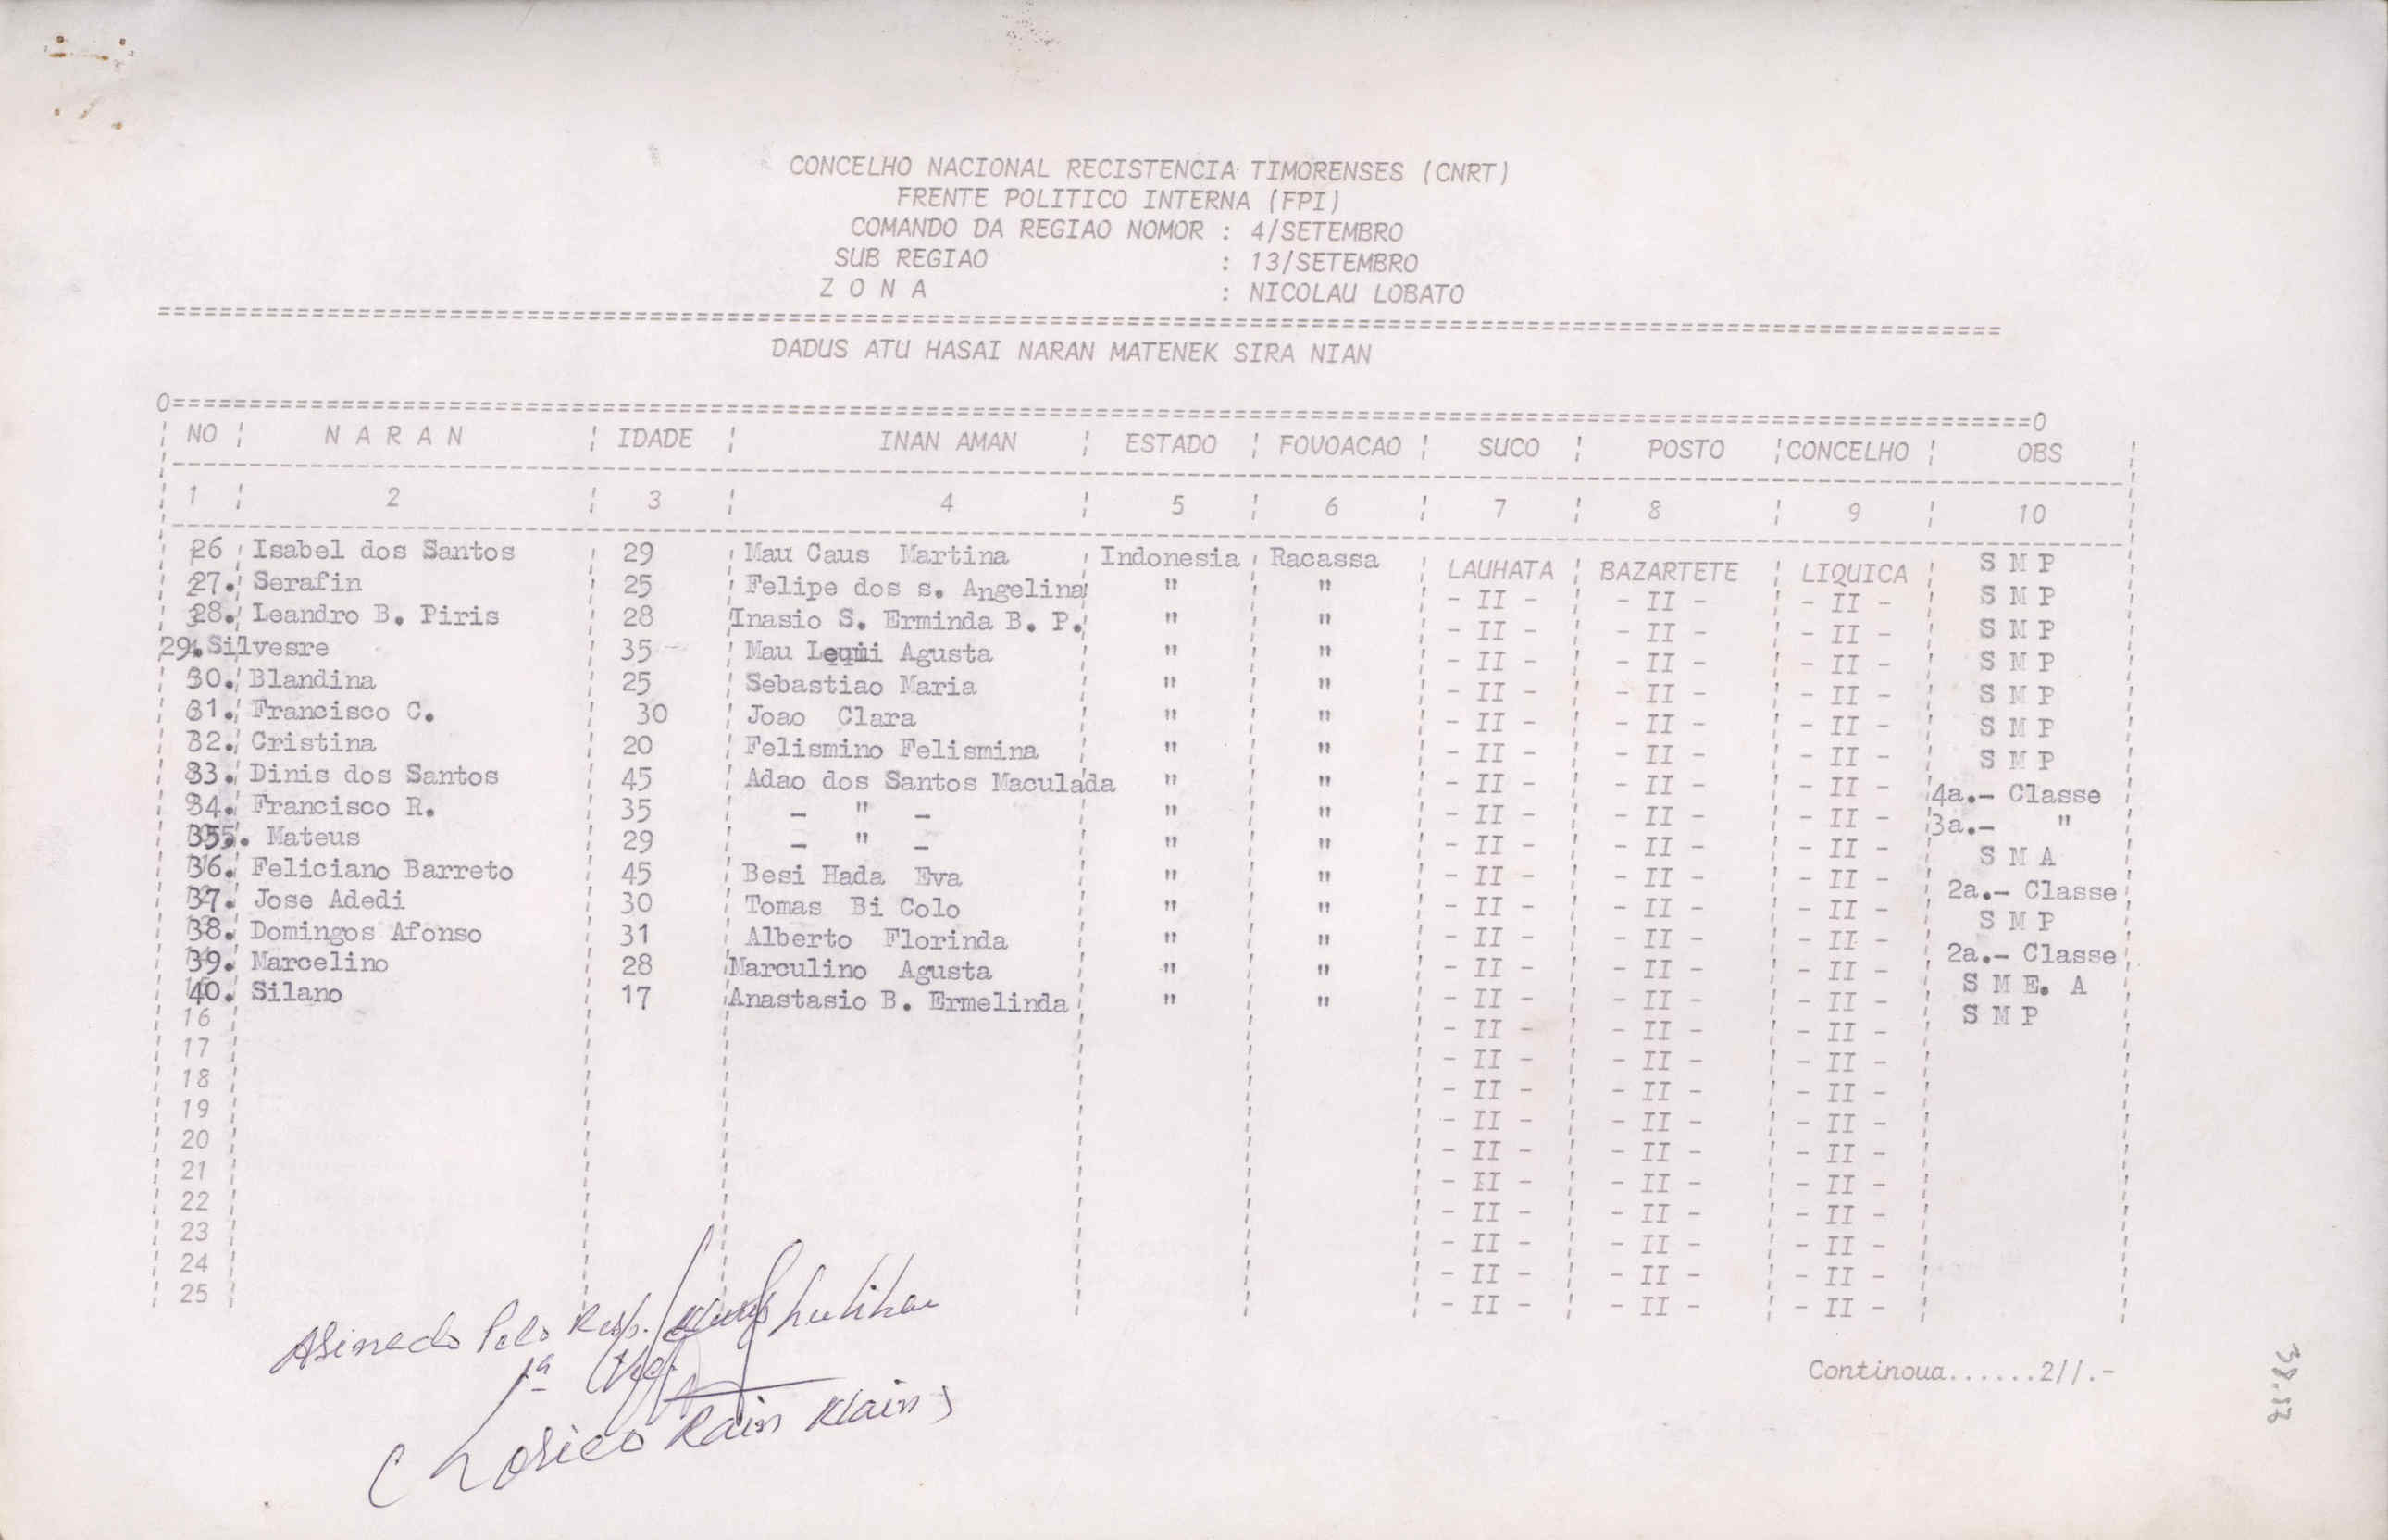 CONCELHO NACIONAL RECISTENCIA TIMORENSES (CNRT)
FRENTE POLITICO INTERNA (FPI)
COMANDO DA REGIAO NOMOR : 4/SETEMBRO
SUB REGIAO : 13/SETEMBRO
Z O N A : NICOLAU LOBATO
DADUS ATU HASAI NARAN MATENEK SIRA NIAN
NO N A R A N IDADE INAN AMAN ESTADO FOVOACAO SUCO POSTO CONCELHO OBS
1 2 3 4 5 6 7 8 9 10
26 Isabel dos Santos 29 Mau Caus Martina Indonesia Racassa LAUHATA BAZARTETE LIQUICA S M P
27. Serafin 25 Felipe dos s. Angelina " " - II - - II - - II - S M P
28. Leandro B. Piris 28 Inasio S. Erminda B. P. " " - II - - II - - II - S M P
29. Silvesre 35 Mau Lequi Agusta " " - II - - II - - II - S M P
30. Blandina 25 Sebastiao Maria " " - II - - II - - II - S M P
31. Francisco C. 30 Joao Clara " " - II - - II - - II - S M P
32. Cristina 20 Felismino Felismina " " - II - - II - - II - S M P
33. Dinis dos Santos 45 Adao dos Santos Maculada " " - II - - II - - II - 4a.- Classe
34. Francisco R. 35 - " - " " - II - - II - - II - 3a.- "
35. Mateus 29 - " - " " - II - - II - - II - S M A
36. Feliciano Barreto 45 Besi Hada Eva " " - II - - II - - II - 2a.- Classe
37. Jose Adedi 30 Tomas Bi Colo " " - II - - II - - II - S M P
38. Domingos Afonso 31 Alberto Florinda " " - II - - II - - II - 2a.- Classe
39. Marcelino 28 Marculino Agusta " " - II - - II - - II - S M E. A
40. Silano 17 Anastasio B. Ermelinda " " - II - - II - - II - S M P
16 - II - - II - - II -
17 - II - - II - - II -
18 - II - - II - - II -
19 - II - - II - - II -
20 - II - - II - - II -
21 - II - - II - - II -
22 - II - - II - - II -
23 - II - - II - - II -
24 - II - - II - - II -
25 - II - - II - - II -
Asinado Pelo Resp.
1ª
Continoua......2//.-
( Lorico Rain Klain )